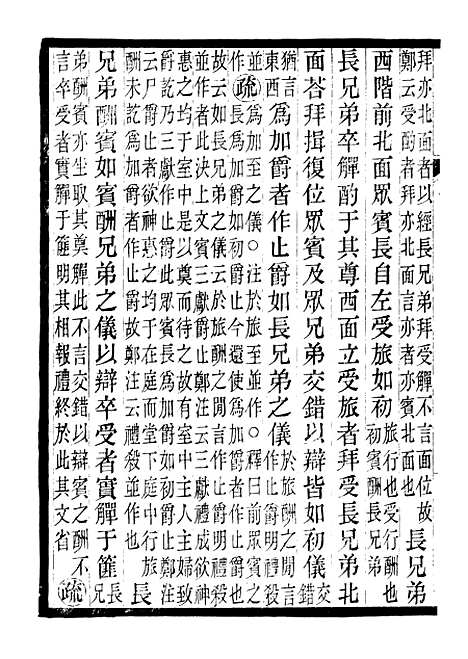 拜亦北面者以經長兄弟拜受觶不言面位故
鄭云受酌者拜亦北面言亦者亦賓北面也
長兄弟
西階前北面眾賓長自左受旅如初
旅行也受行酬也
初賓酬長兄弟
長兄弟卒觶酌于其尊西面立受旅者拜受長兄弟北
面荅拜揖復位眾賓及眾兄弟交錯以辯皆如初儀
交
錯
猶言
東西
為加爵者作止爵如長兄弟之儀
於旅酬之閒
言作止爵明禮殺
並
作
疏
為加至之儀○注於旅至並作○釋曰前眾賓之
長為加爵如初爵止今還使為加爵者作止爵也
故云如長兄弟之儀云於旅酬之閒言作止爵明禮殺
並作者此決上文賓三獻爵止鄭注云三獻禮成欲神
惠之均于室中是以奠而待之故有室中主人主婦致
爵訖乃三獻作止爵此眾賓長為加爵如初爵止鄭注
云尸爵止者欲神惠之均于在庭而堂下庭中行旅
酬未訖為加爵者作止爵故鄭注云禮殺並作也
長
兄弟酬賓如賓酬兄弟之儀以辯卒受者實觶于篚
長
兄
弟酬賓亦坐取其奠觶此不言交錯以辯賓之酬不
言卒受者實觶于篚明其相報禮終於此其文省
疏